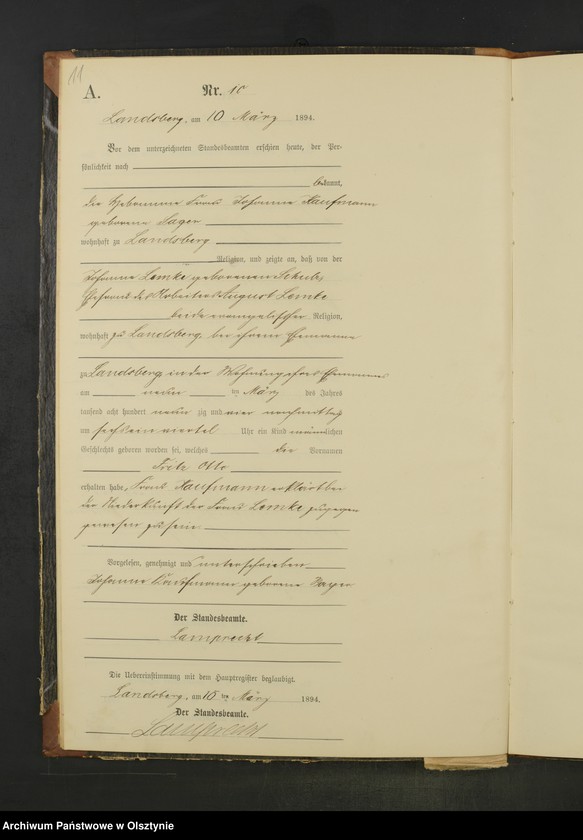 11
A.
Nr. 10
Landsberg, am 10 März 1894.
Vor dem unterzeichneten Standesbeamten erschien heute, der Per-
sönlichkeit nach
bekannt,
die Hebamme Frau Johanne Kaufmann
geborene
wohnhaft zu Landsberg
Religion, und zeigte an, daß von der
Johanne Lemke geborenen Schulz,
Ehefrau des Arbeiters August Lemke
beide evangelischer Religion,
wohnhaft zu Landsberg, bei ihrem Ehemanne
zu Landsberg in der Wohnung ihres Ehemannes
am neun ten März des Jahres
tausend acht hundert neun zig und vier nachmittag
um Uhr ein Kind männlichen
Geschlechts geboren worden sei, welches der Vornamen
Fritz Otto
erhalten habe, Frau Kaufmann erklärt bei
der Niederkunft der Frau Lemke zugegen
gewesen zu sein
Vorgelesen, genehmigt und unterschrieben
Johanne Kaufmann geborene
Der Standesbeamte.
Lamprecht
Die Uebereinstimmung mit dem Hauptregister beglaubigt.
Landsberg, am 10 ten März 1894.
Der Standesbeamte.
Lamprecht
Archiwum Państwowe w Olsztynie